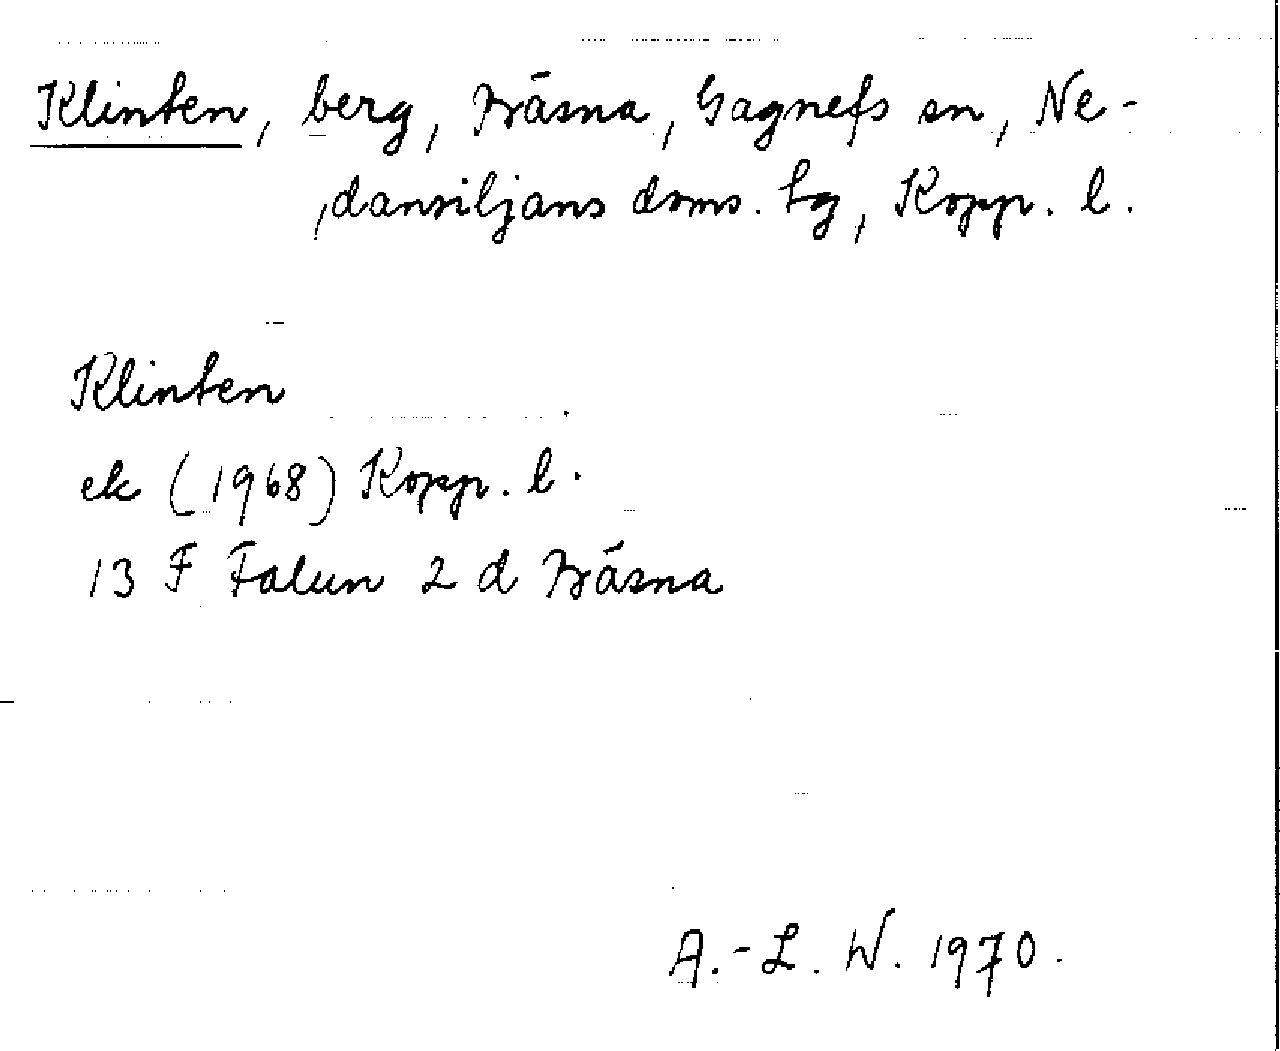 Klinten, berg, Bäsna, Gagnefs sn, Ne-
dansiljans doms. hg, Kopp. l.
Klinten
ek (1968) Kopp. l.
13 F Falun 2 d Bäsna
A.-L. W. 1970.